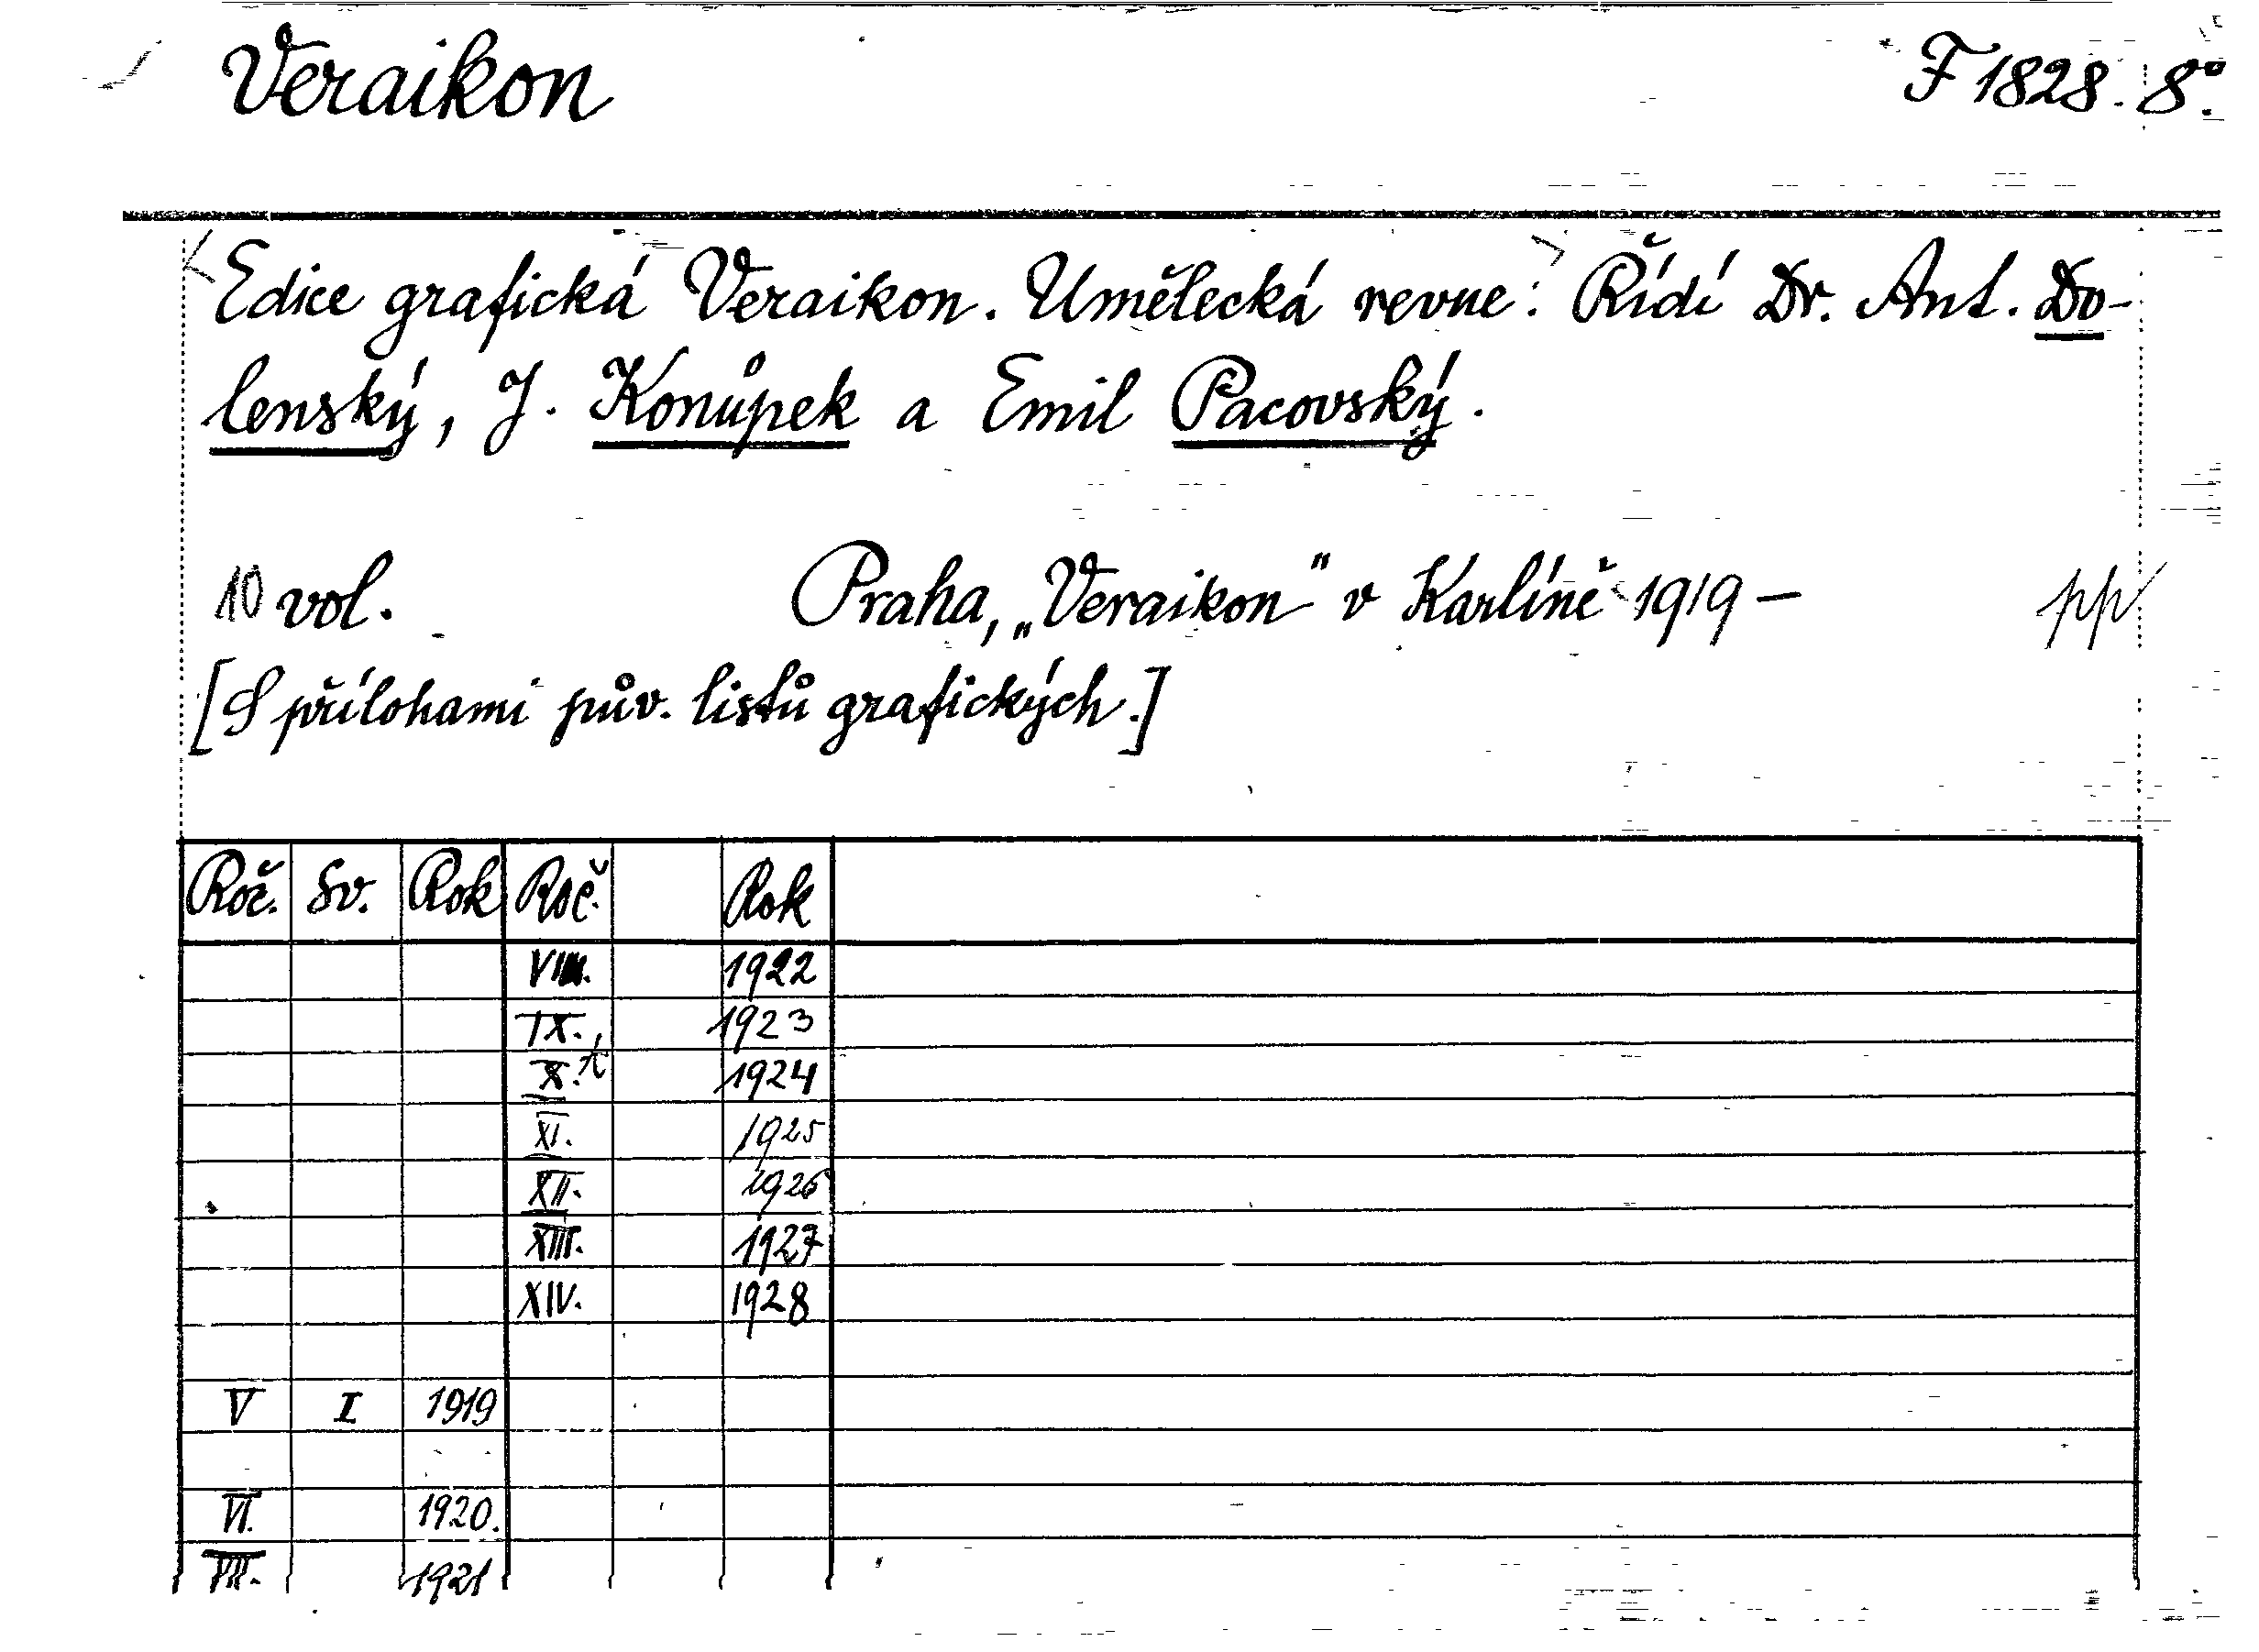 Veraikon F 1828. 8°.
Edice grafická Veraikon. Umělecká revue: Řídí Dr. Ant. Do-
lenský, J. Konůpek a Emil Pacovský.
10 vol. Praha, „Veraikon“ v Karlíně 1919 — pp
[S přílohami pův. listů grafických.]
Roč. Sv. Rok Roč. Rok
VIII. 1922
IX. 1923
X. 1924
XI. 1925
XII. 1926
XIII. 1927
XIV. 1928
V I 1919
VI. 1920.
VII. 1921